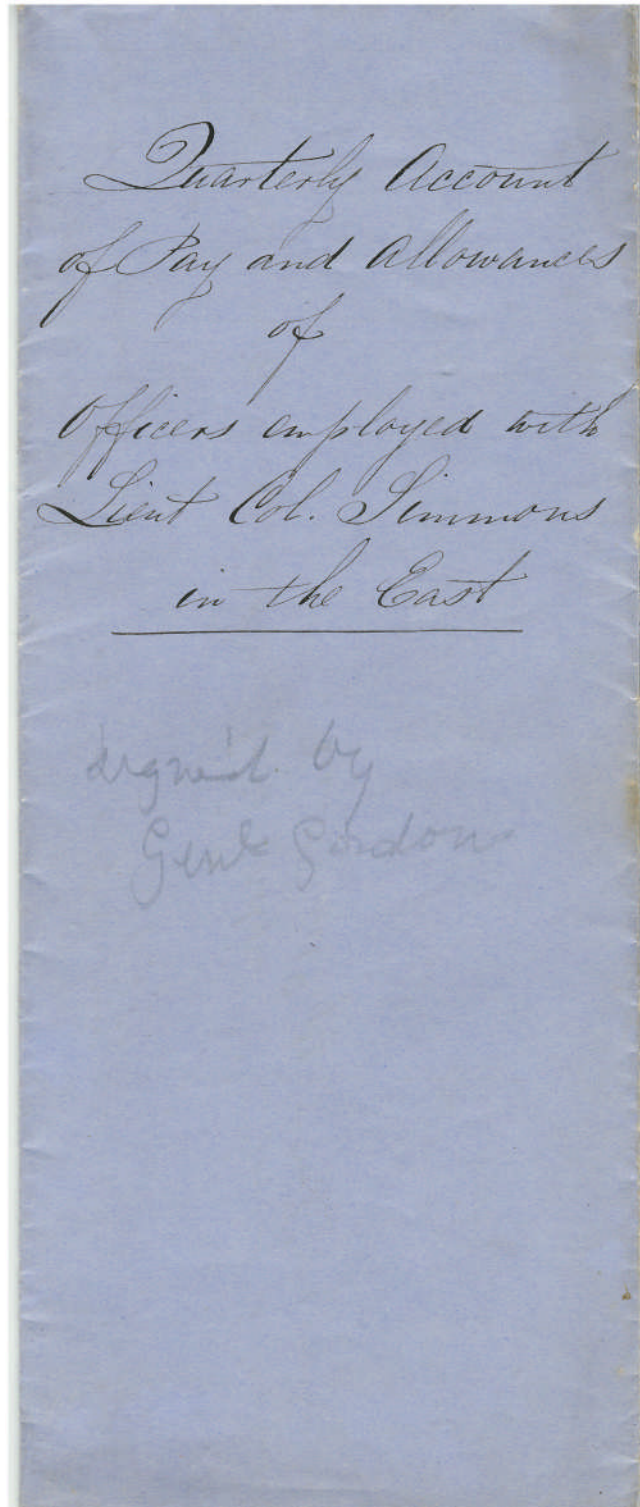 Quarterly Account
of Pay and Allowances
of
Officers employed with
Lieut Col. Simmons
in the East
signed by
Genl Gordon